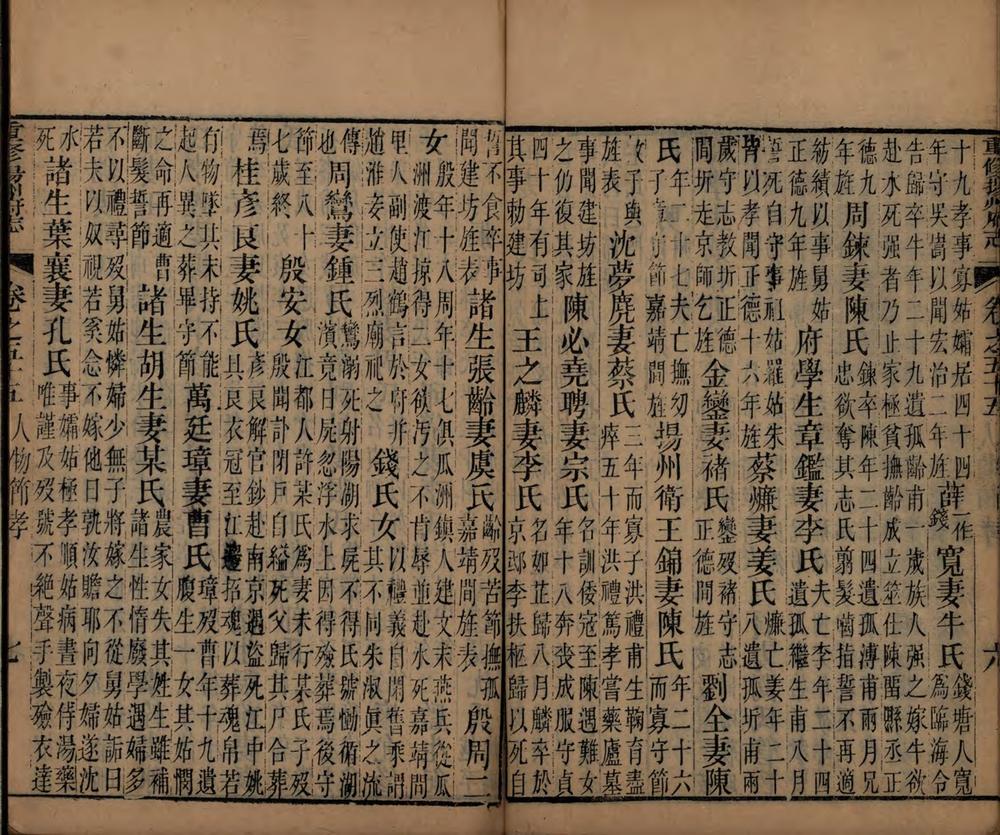 重修揚州府志 卷之五十五 六
十九孝事寡姑孀居四十四年守吳嵩以聞宏治二年旌 薛一作錢寬妻牛氏錢塘人寬為臨海令
告歸卒牛年二十九遺孤齡甫一歲族人强之嫁牛欲赴水死强者乃止家極貧撫齡成立筮仕陳留縣丞正
德九年旌 周鍊妻陳氏鍊卒陳年二十四遺孤溥甫兩月兄忠欲奪其志氏翦髮噛指誓不再適
紡績以事舅姑正德九年旌 府學生章鑑妻李氏夫亡李年二十四遺孤繼生甫八月
誓死自守事祖姑羅姑朱皆以孝聞正德十六年旌 蔡妻姜氏亡姜年二十八遺孤圻甫兩
歲守志教圻正德間圻走京師乞旌 金鑾妻褚氏鑾歿褚守志正德間旌 劉全妻陳
氏年二十七夫亡撫幼子守節嘉靖間旌 揚州衛王錦妻陳氏年二十六而寡守節
教子與旌表 沈夢麂妻蔡氏三年而寡子洪禮甫生鞠育盡瘁五十年洪禮篤孝嘗藥廬墓
事聞建坊旌之仍復其家 陳必堯聘妻宗氏名訓倭寇至陳遇難女年十八奔喪成服守貞
四十年有司上其事勅建坊 王之麟妻李氏名如芷歸八月麟卒於京邸李扶柩歸以死自
誓不食卒事聞建坊旌表 諸生張齡妻虞氏齡歿苦節撫孤嘉靖間旌表 殷周二
女殷年十八周年十七俱瓜洲鎮人建文末燕兵從瓜洲渡江掠得二女欲汚之不肯辱並赴水死嘉靖間
里人副使趙鶴言於府并趙淮妾立三烈廟祀之 錢氏女以禮義自閑舊乘謂其不同朱淑眞之流
傳也 周鸞妻鍾氏鸞溺死射陽湖求屍不得氏號慟循湖濱竟日屍忽浮水上因得殮葬焉後守
節至八十七歲終 殷安女江都人許某氏爲妻未行某氏子歿殷聞訃閉戸自縊死父歸其尸合葬
焉 桂彦良妻姚氏彦良解官鈔赴南京遇盜死江中姚具良衣冠至江邊招魂以葬魂帛若
有物墜其末持不能起人異之葬畢守節 萬廷璋妻曹氏璋歿曹年十九遺腹生一女其姑憫
之命再適曹斷髮誓節 諸生胡生妻某氏農家女失其姓生雖補諸生性惰廢學遇婦多
不以禮尋歿舅姑憐婦少無子將嫁之不從舅姑詬曰若夫以奴視若奚念不嫁他日孰汝贍耶向夕婦遂沈
水死 諸生葉襄妻孔氏事孀姑極孝順姑病晝夜侍湯藥唯謹及歿號不絶聲手製殮衣達
重修揚州府志 卷之五十五 人物節孝 七